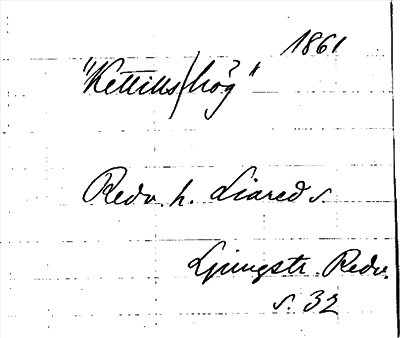 1861
"Kettills/hög"
Redv. h. Liared s.
Ljungstr. Redv.
s. 32